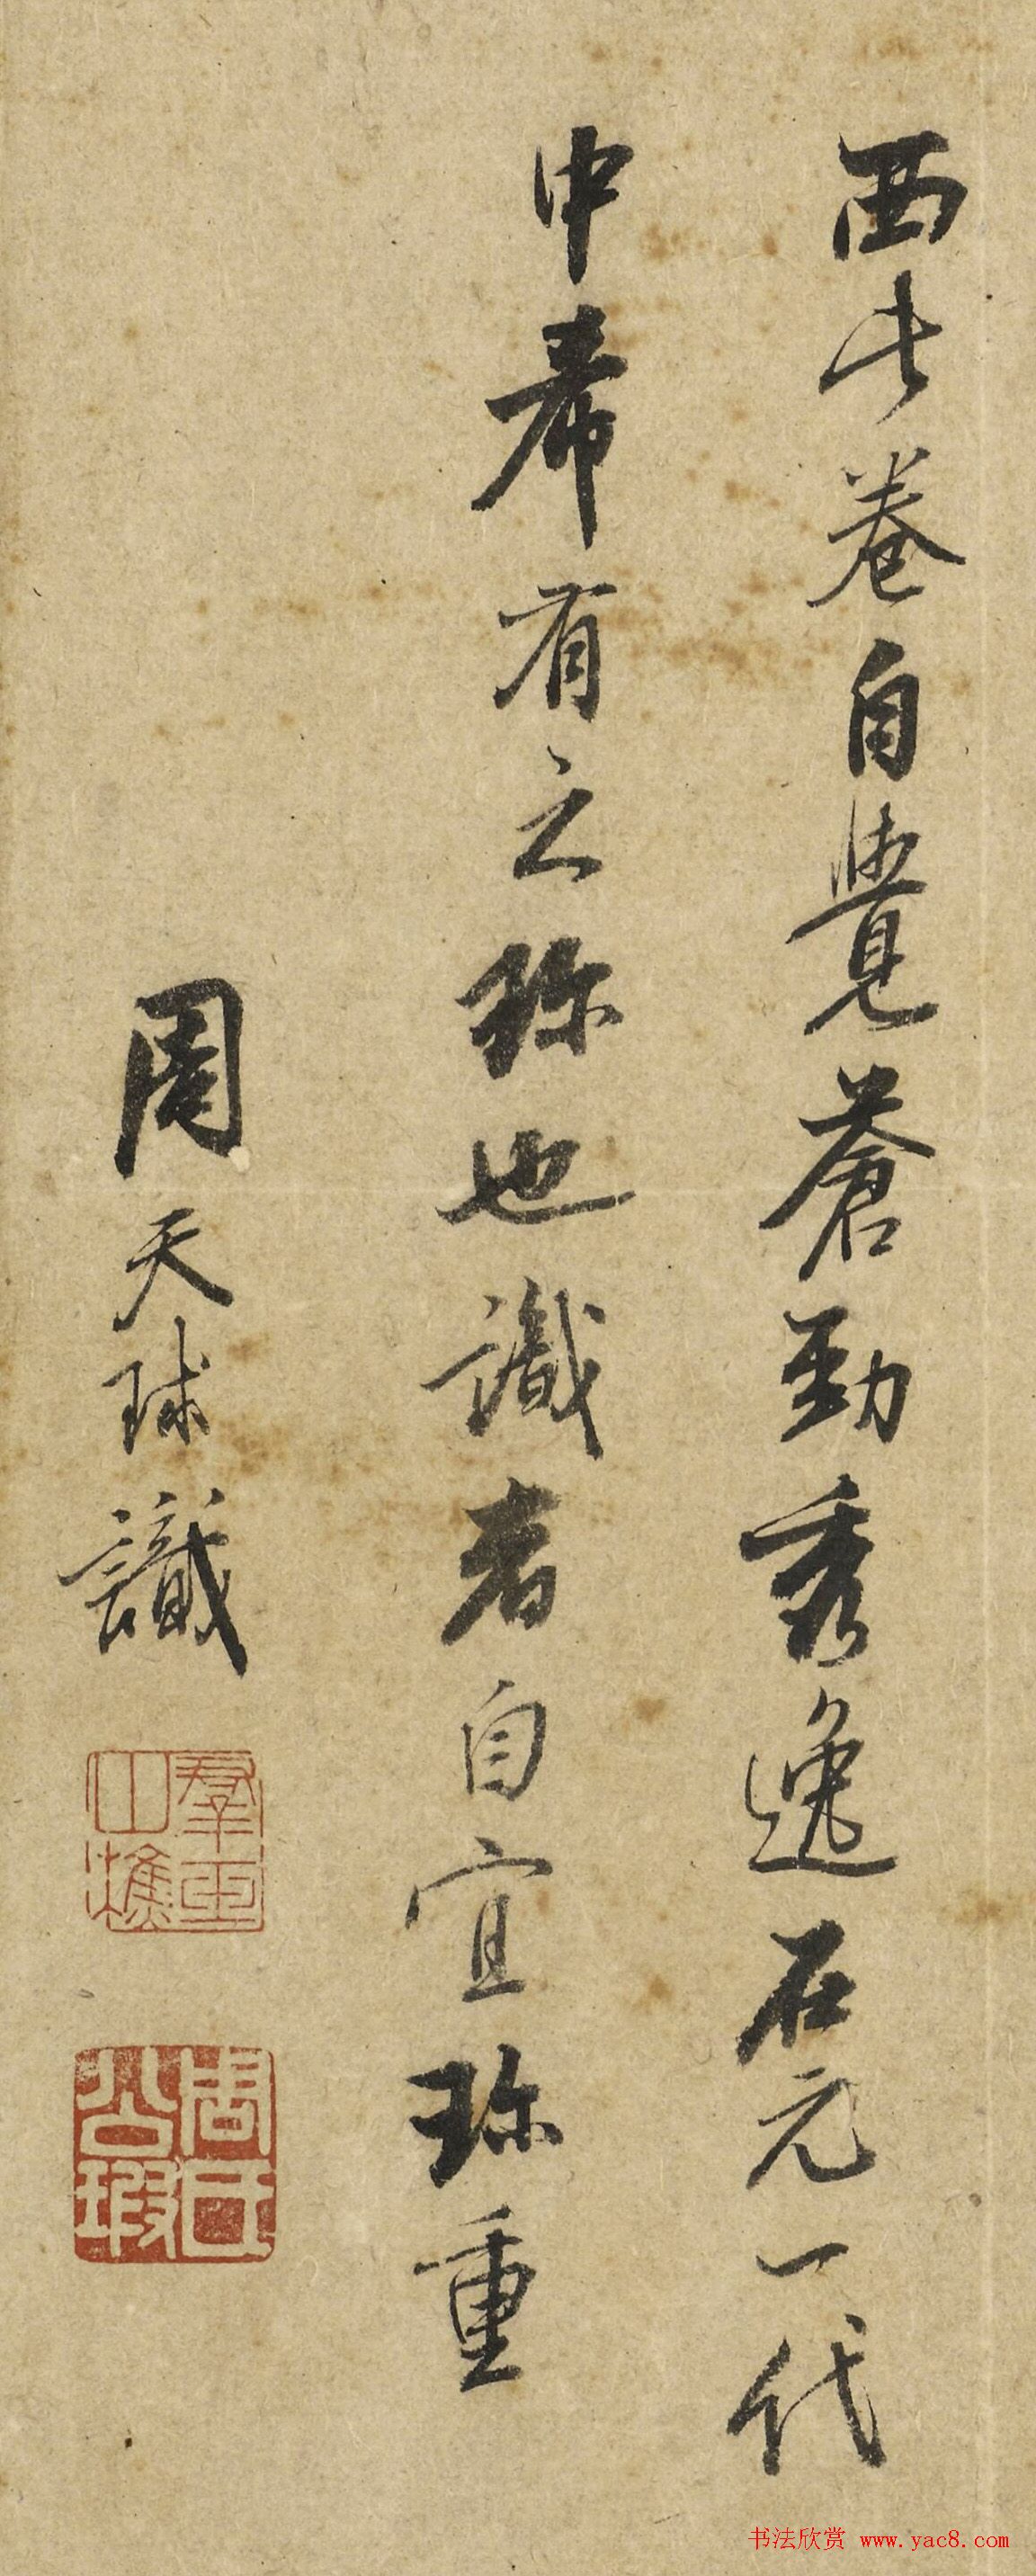 而此卷自覺蒼勁秀逸在元一代
中希有之珎也識者自宜珎重
周天球識
羣玉山樵
周氏公瑕
书法欣赏 www.yac8.com